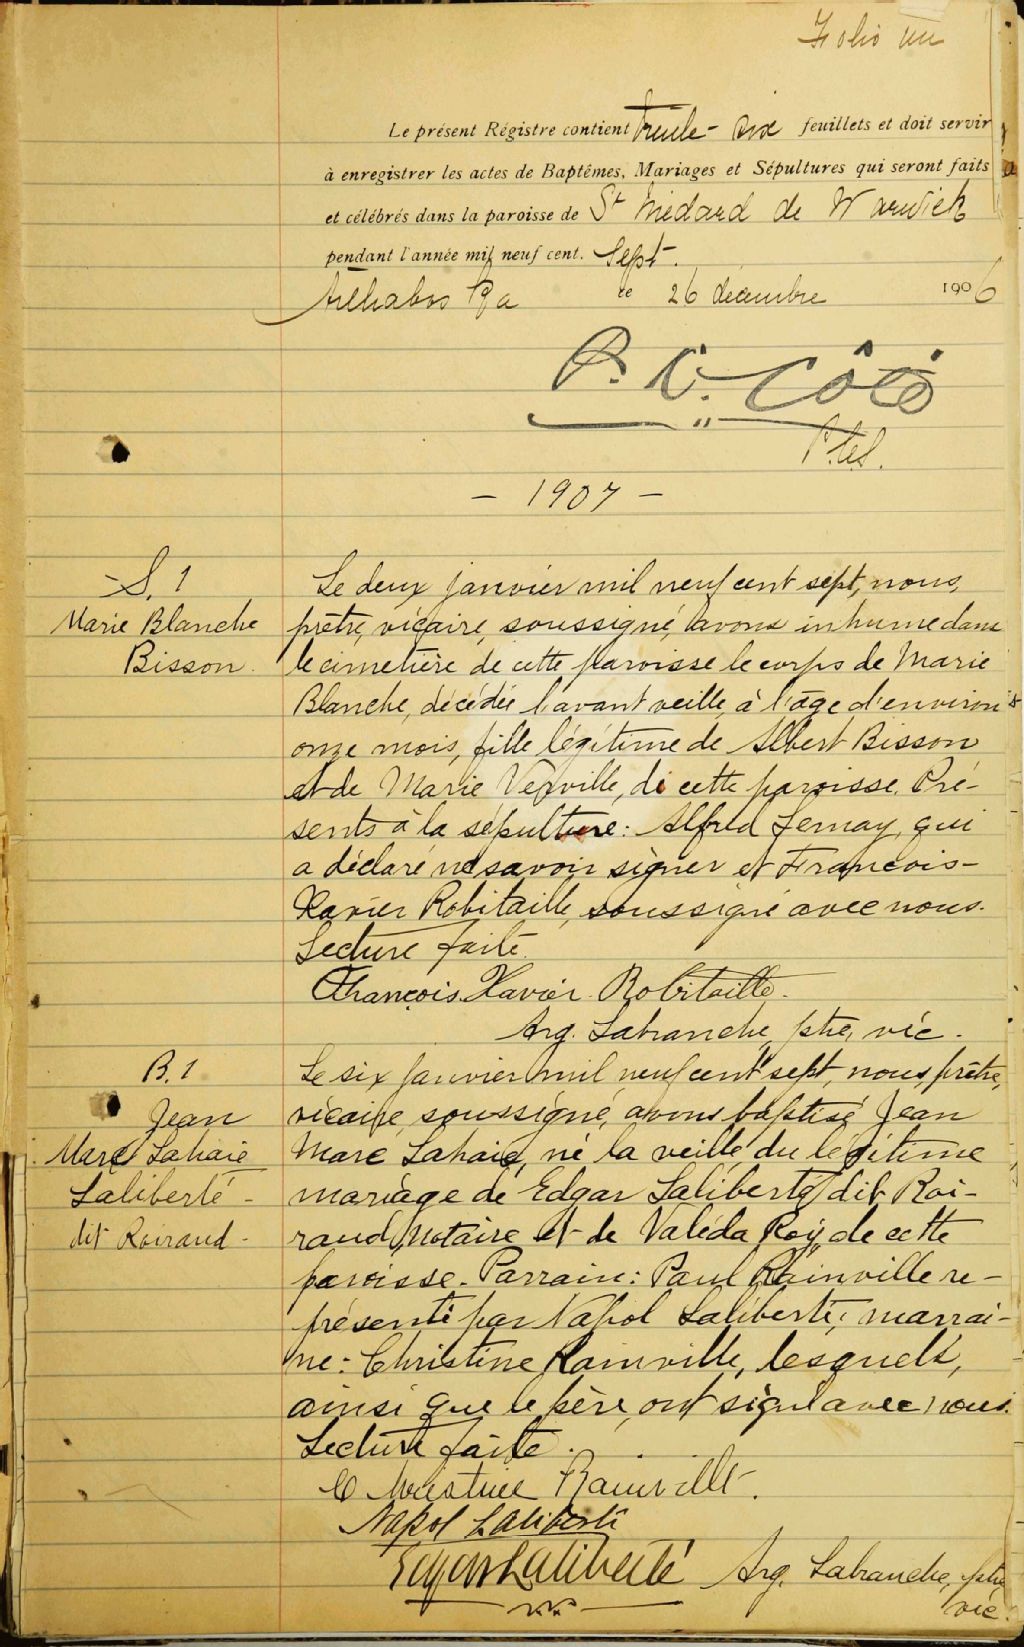 Folio un
Le présent Régistre contient trente-six feuillets et doit servir
à enregistrer les actes de Baptêmes, Mariages et Sépultures qui seront faits
et célébrés dans la paroisse de St Médard de Warwick
pendant l'année mil neuf cent. Sept.
ce 26 décembre 1906
P. C. Côté
- 1907 -
S. 1
Marie Blanche
Bisson.
Le deux janvier mil neuf cent sept, nous,
prêtre, vicaire, soussigné, avons inhumé dans
le cimetière de cette paroisse le corps de Marie
Blanche, décédée l'avant veille, à l'âge d'environ
onze mois, fille légitime de Albert Bisson
et de Marie Verville, de cette paroisse. Pré-
sents à la sépulture: Alfred Lemay, qui
a déclaré ne savoir signer et François-
Xavier Robitaille, soussigné avec nous.
Lecture faite.
François Xavier Robitaille.
Arg. Labranche, ptre, vic.
B. 1
Jean
Marc Lahaie
Laliberté -
dit Roiraud -
Le six janvier mil neuf cent sept, nous, prêtre,
vicaire, soussigné, avons baptisé Jean
Marc Lahaie, né la veille du légitime
mariage de Edgar Laliberté dit Roi-
raud, notaire et de Valéda Roy, de cette
paroisse. Parrain: Paul Rainville re-
présenté par Napol Laliberté; marrai-
ne: Christine Rainville, lesquels,
ainsi que le père, ont signé avec nous.
Lecture faite.
Christine Rainville.
Napol Laliberté
Edgar Laliberté
Arg. Labranche, ptre
vic.